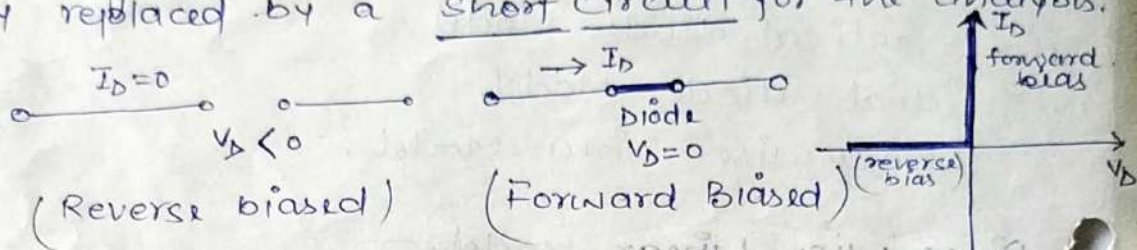 y replaced by a short circuit for the analysis.
I_D = 0
V_D < 0
(Reverse biased)
→ I_D
Diode
V_D = 0
(Forward Biased)
I_D
forward
bias
(reverse)
bias
V_D